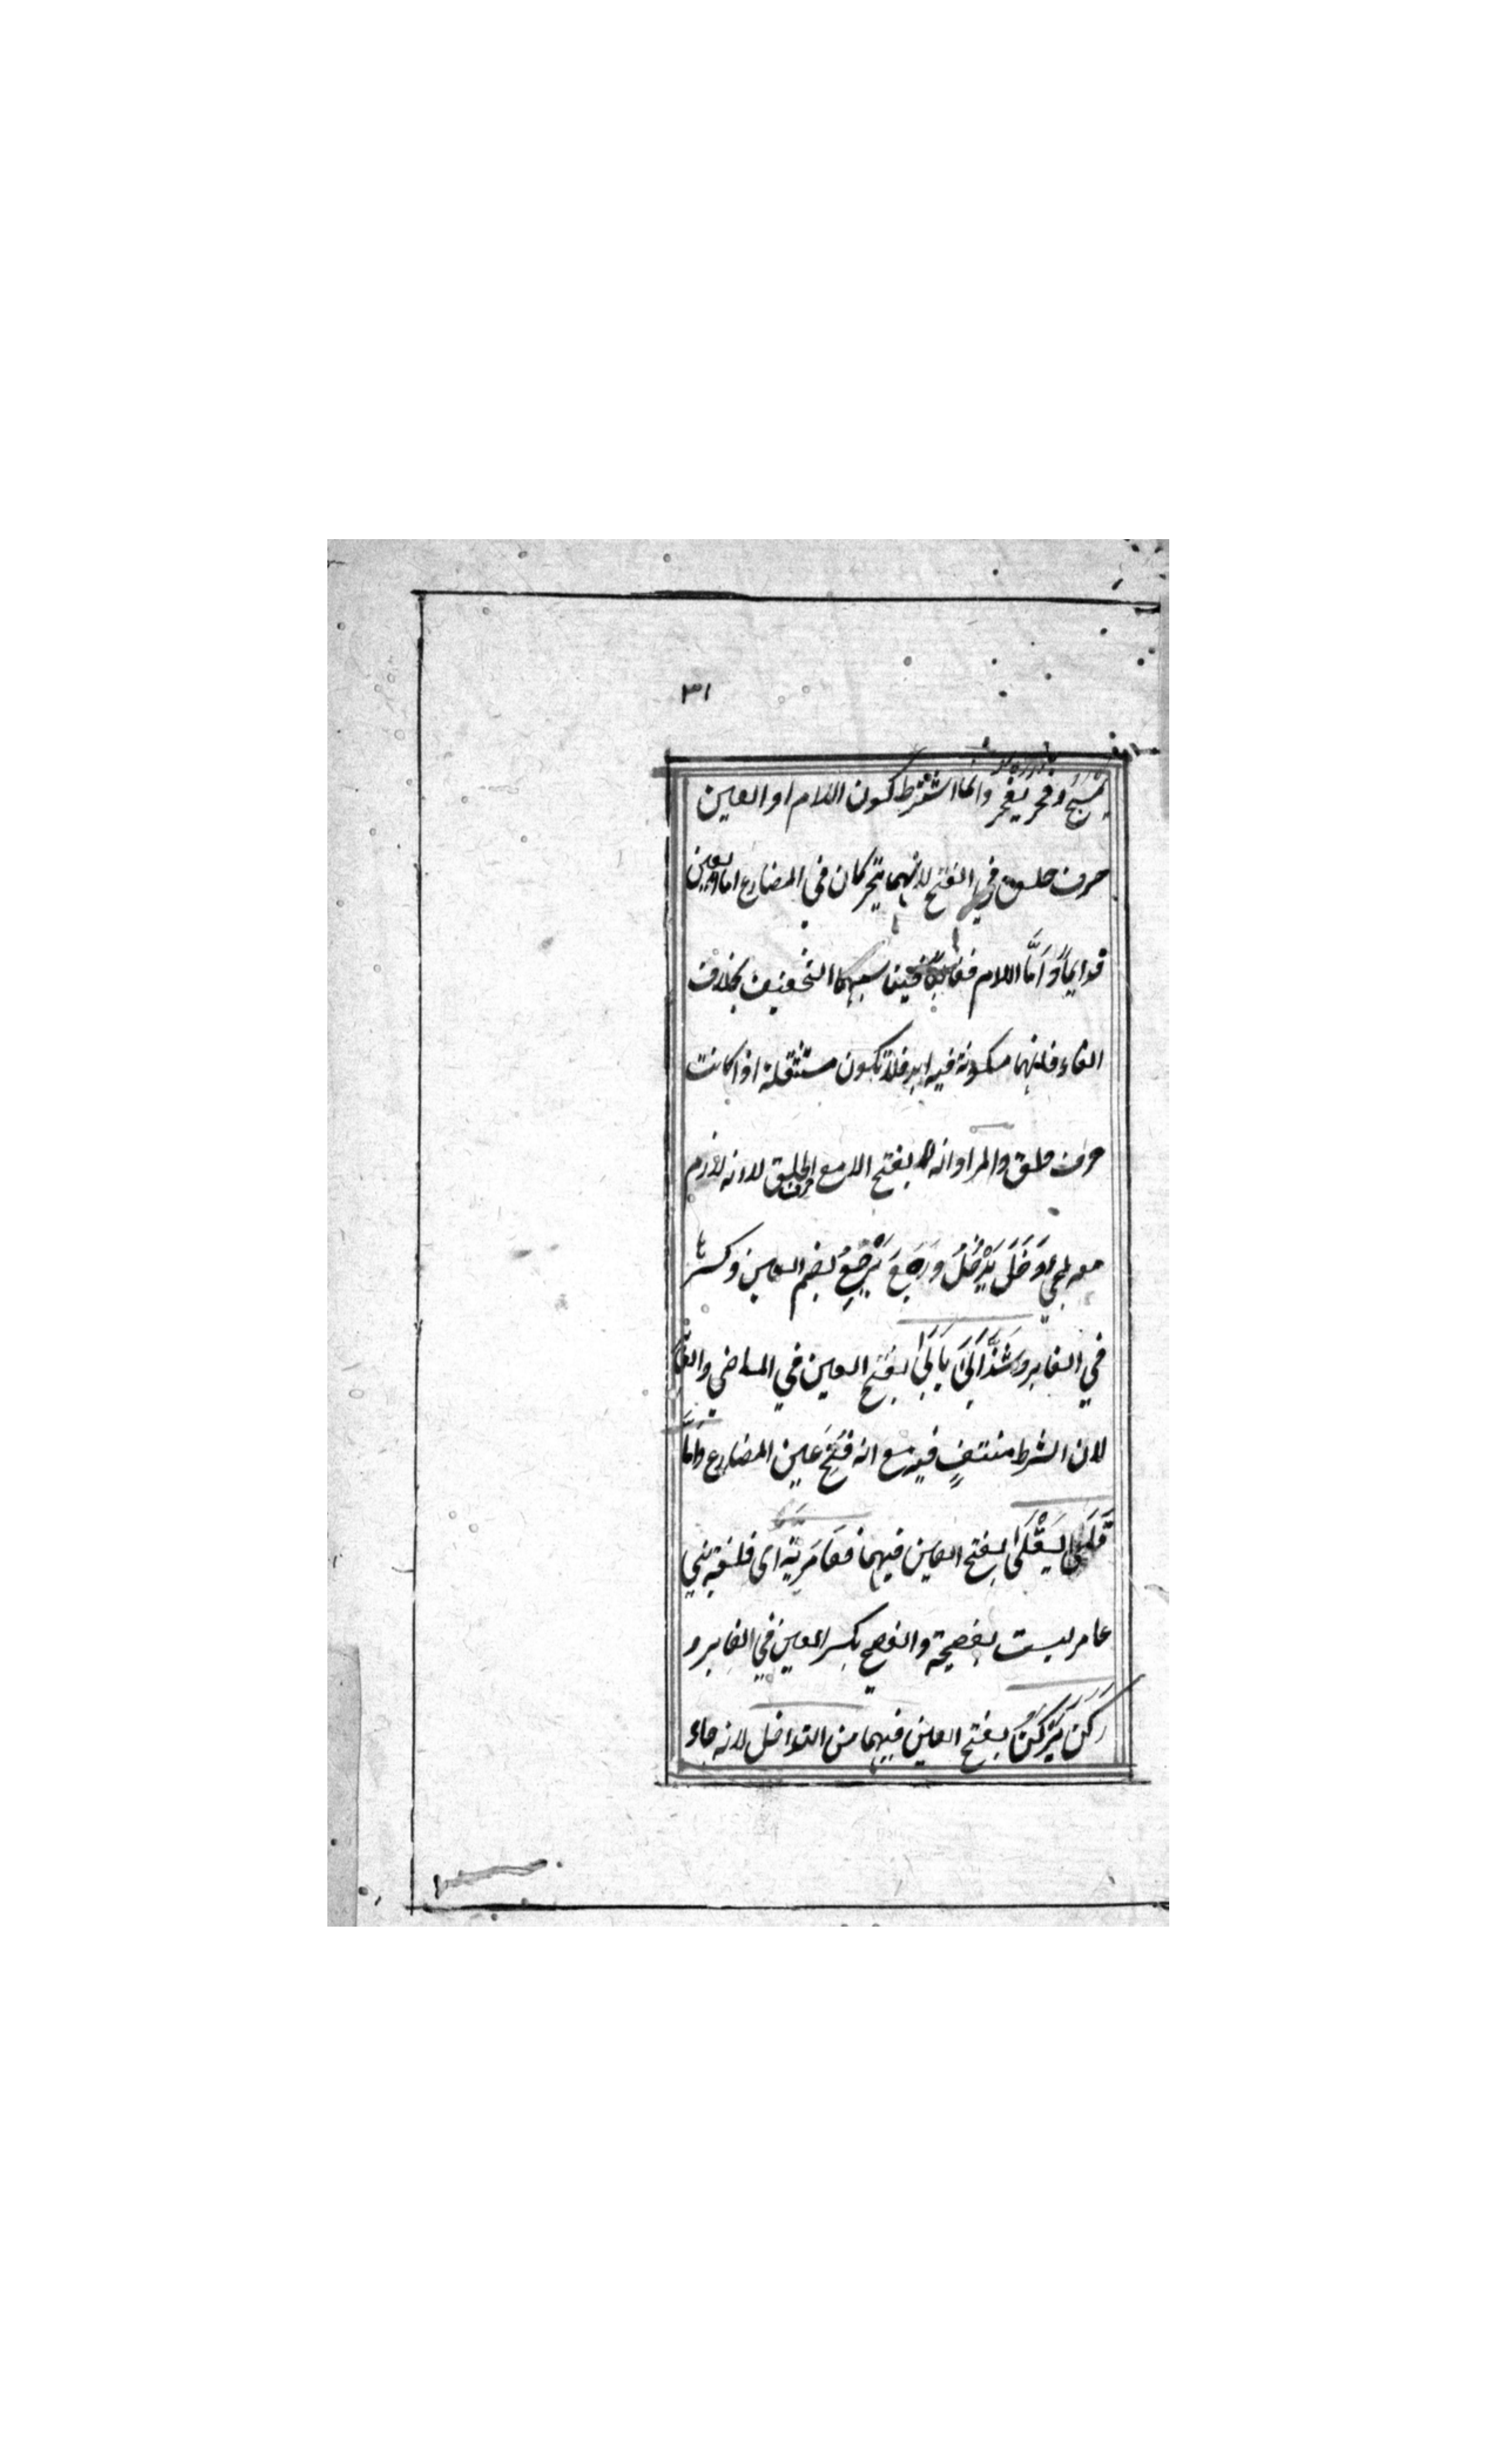 ٣١
يسبح وفخر يفخر وانما اشترط كون اللام او العين
حرف حلق في الفتح لانهما يتحركان في المضارع اما العين
فدايماً وَاَمَّا اللام سببهما التخفيف بخلاف
الفاء فانهما مسكونة فيه ابدا فلا تكون مستثقلة اذا كانت
حرف حلق والمراد انه بفتح اللا مع حرف الحلق لا انه لازم
معه لمجئ دَخَلَ يَدْخُلُ وَرَجَعَ يَرْجِعُ بضم العين وكسرها
في الغابر وَشَذَّ اَبَىٰ يَابَىٰ بفتح العين في الماضي والغابر
لان الشرط منتفٍ فيه مع انه فُتِحَ عين المضارع وامّا
قَلَىٰ يَقْلَىٰ بفتح العين فيهما فعَامَرية اى فلغة بني
عامر ليست بفصيحة والفصيح بكسر العين في الغابر و
رَكَنَ يَرْكَنُ بفتح العين فيهما من التداخل لانه جاء